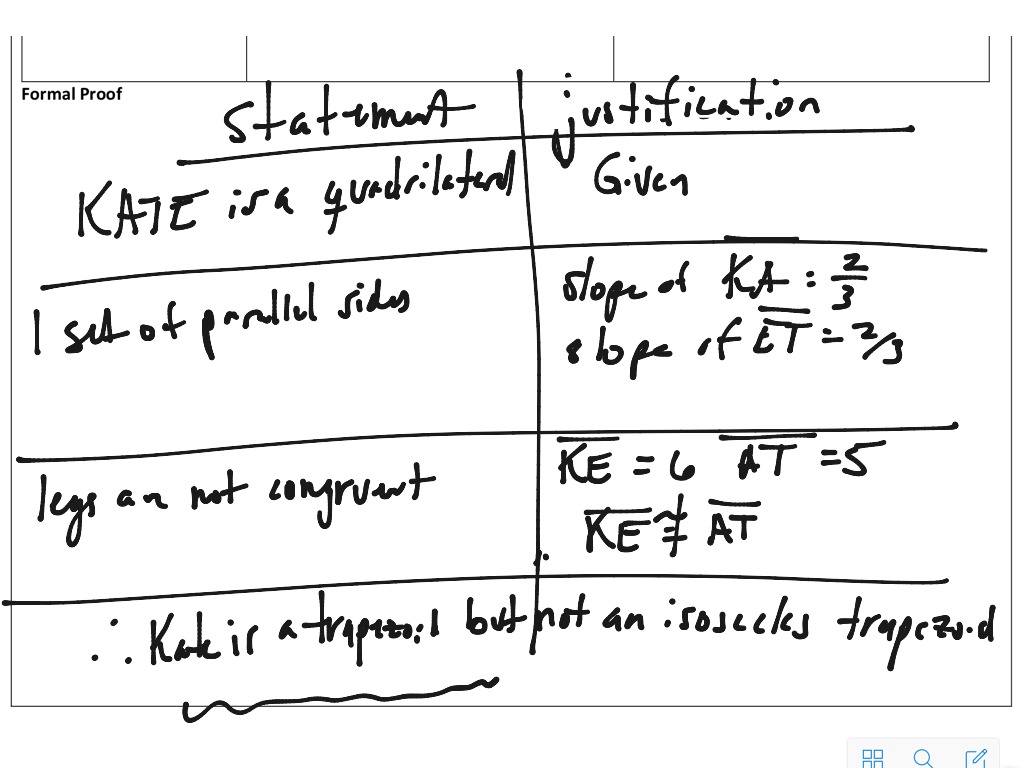 Formal Proof
statement justification
KATE is a quadrilateral Given
1 set of parallel sides
slope of KA = 2/3
slope of ET = 2/3
legs are not congruent
KE = 6 AT = 5
KE ≇ AT
∴ Kate is a trapezoid but not an isosceles trapezoid